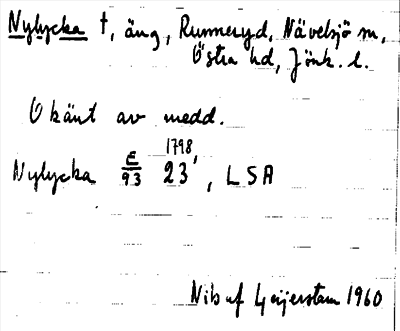 Nylycka †, äng, Runneryd, Nävelsjö sn,
Östra hd, Jönk. l.
Okänt av medd.
Nylycka E/93 23 1798, LSA
Nils af Geijerstam 1960